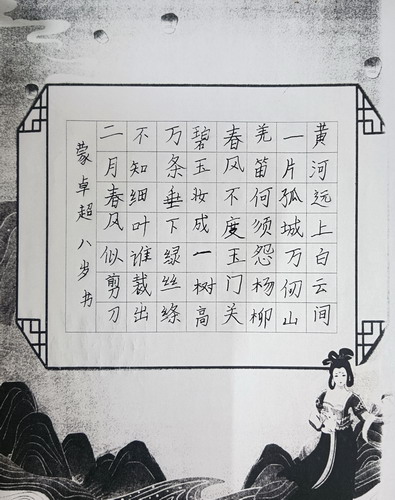 黄河远上白云间
一片孤城万仞山
羌笛何须怨杨柳
春风不度玉门关
碧玉妆成一树高
万条垂下绿丝绦
不知细叶谁裁出
二月春风似剪刀
蒙卓超八岁书